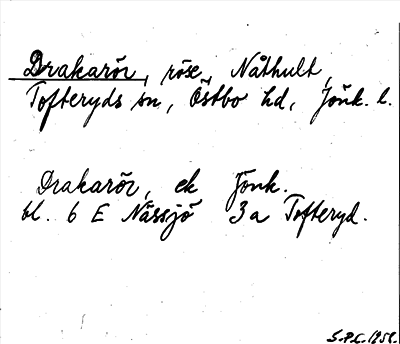 Drakarör, röse, Nåthult,
Tofteryds sn, Östbo hd, Jönk. l.
Drakarör, ek Jönk.
bl. 6 E Nässjö 3a Tofteryd.